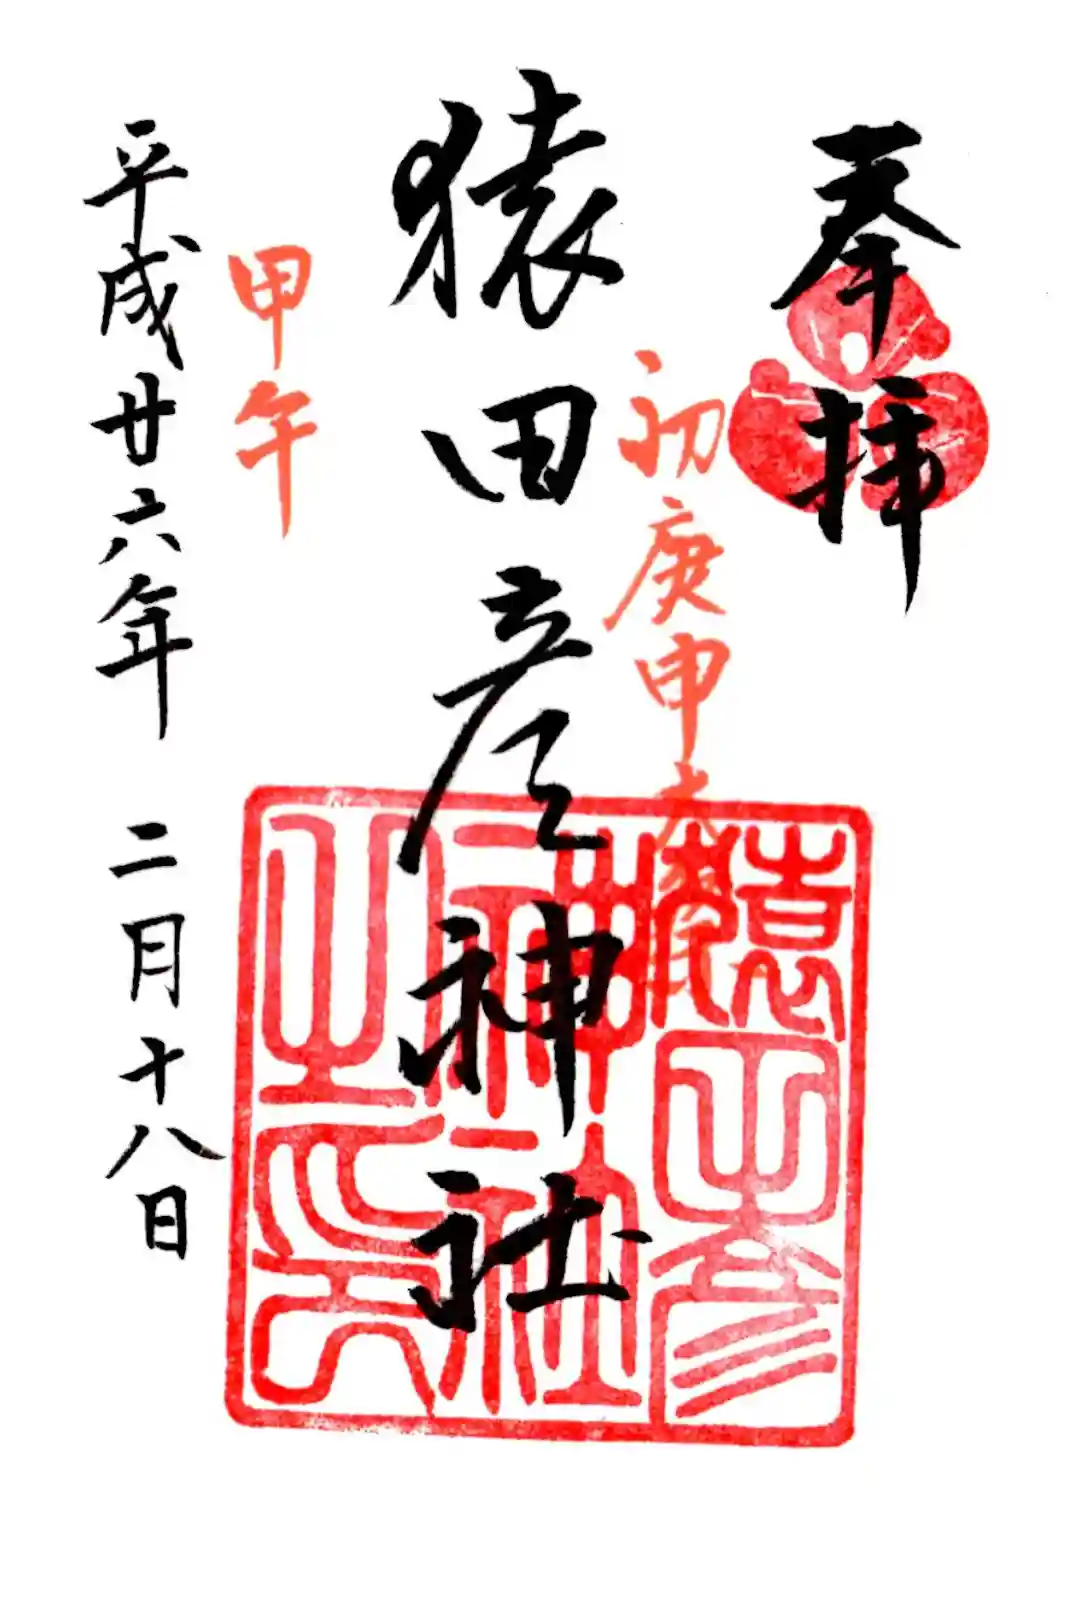 奉拝
初庚申大祭
猿田彦神社
甲午
平成廿六年 二月十八日
猿田彦神社之印